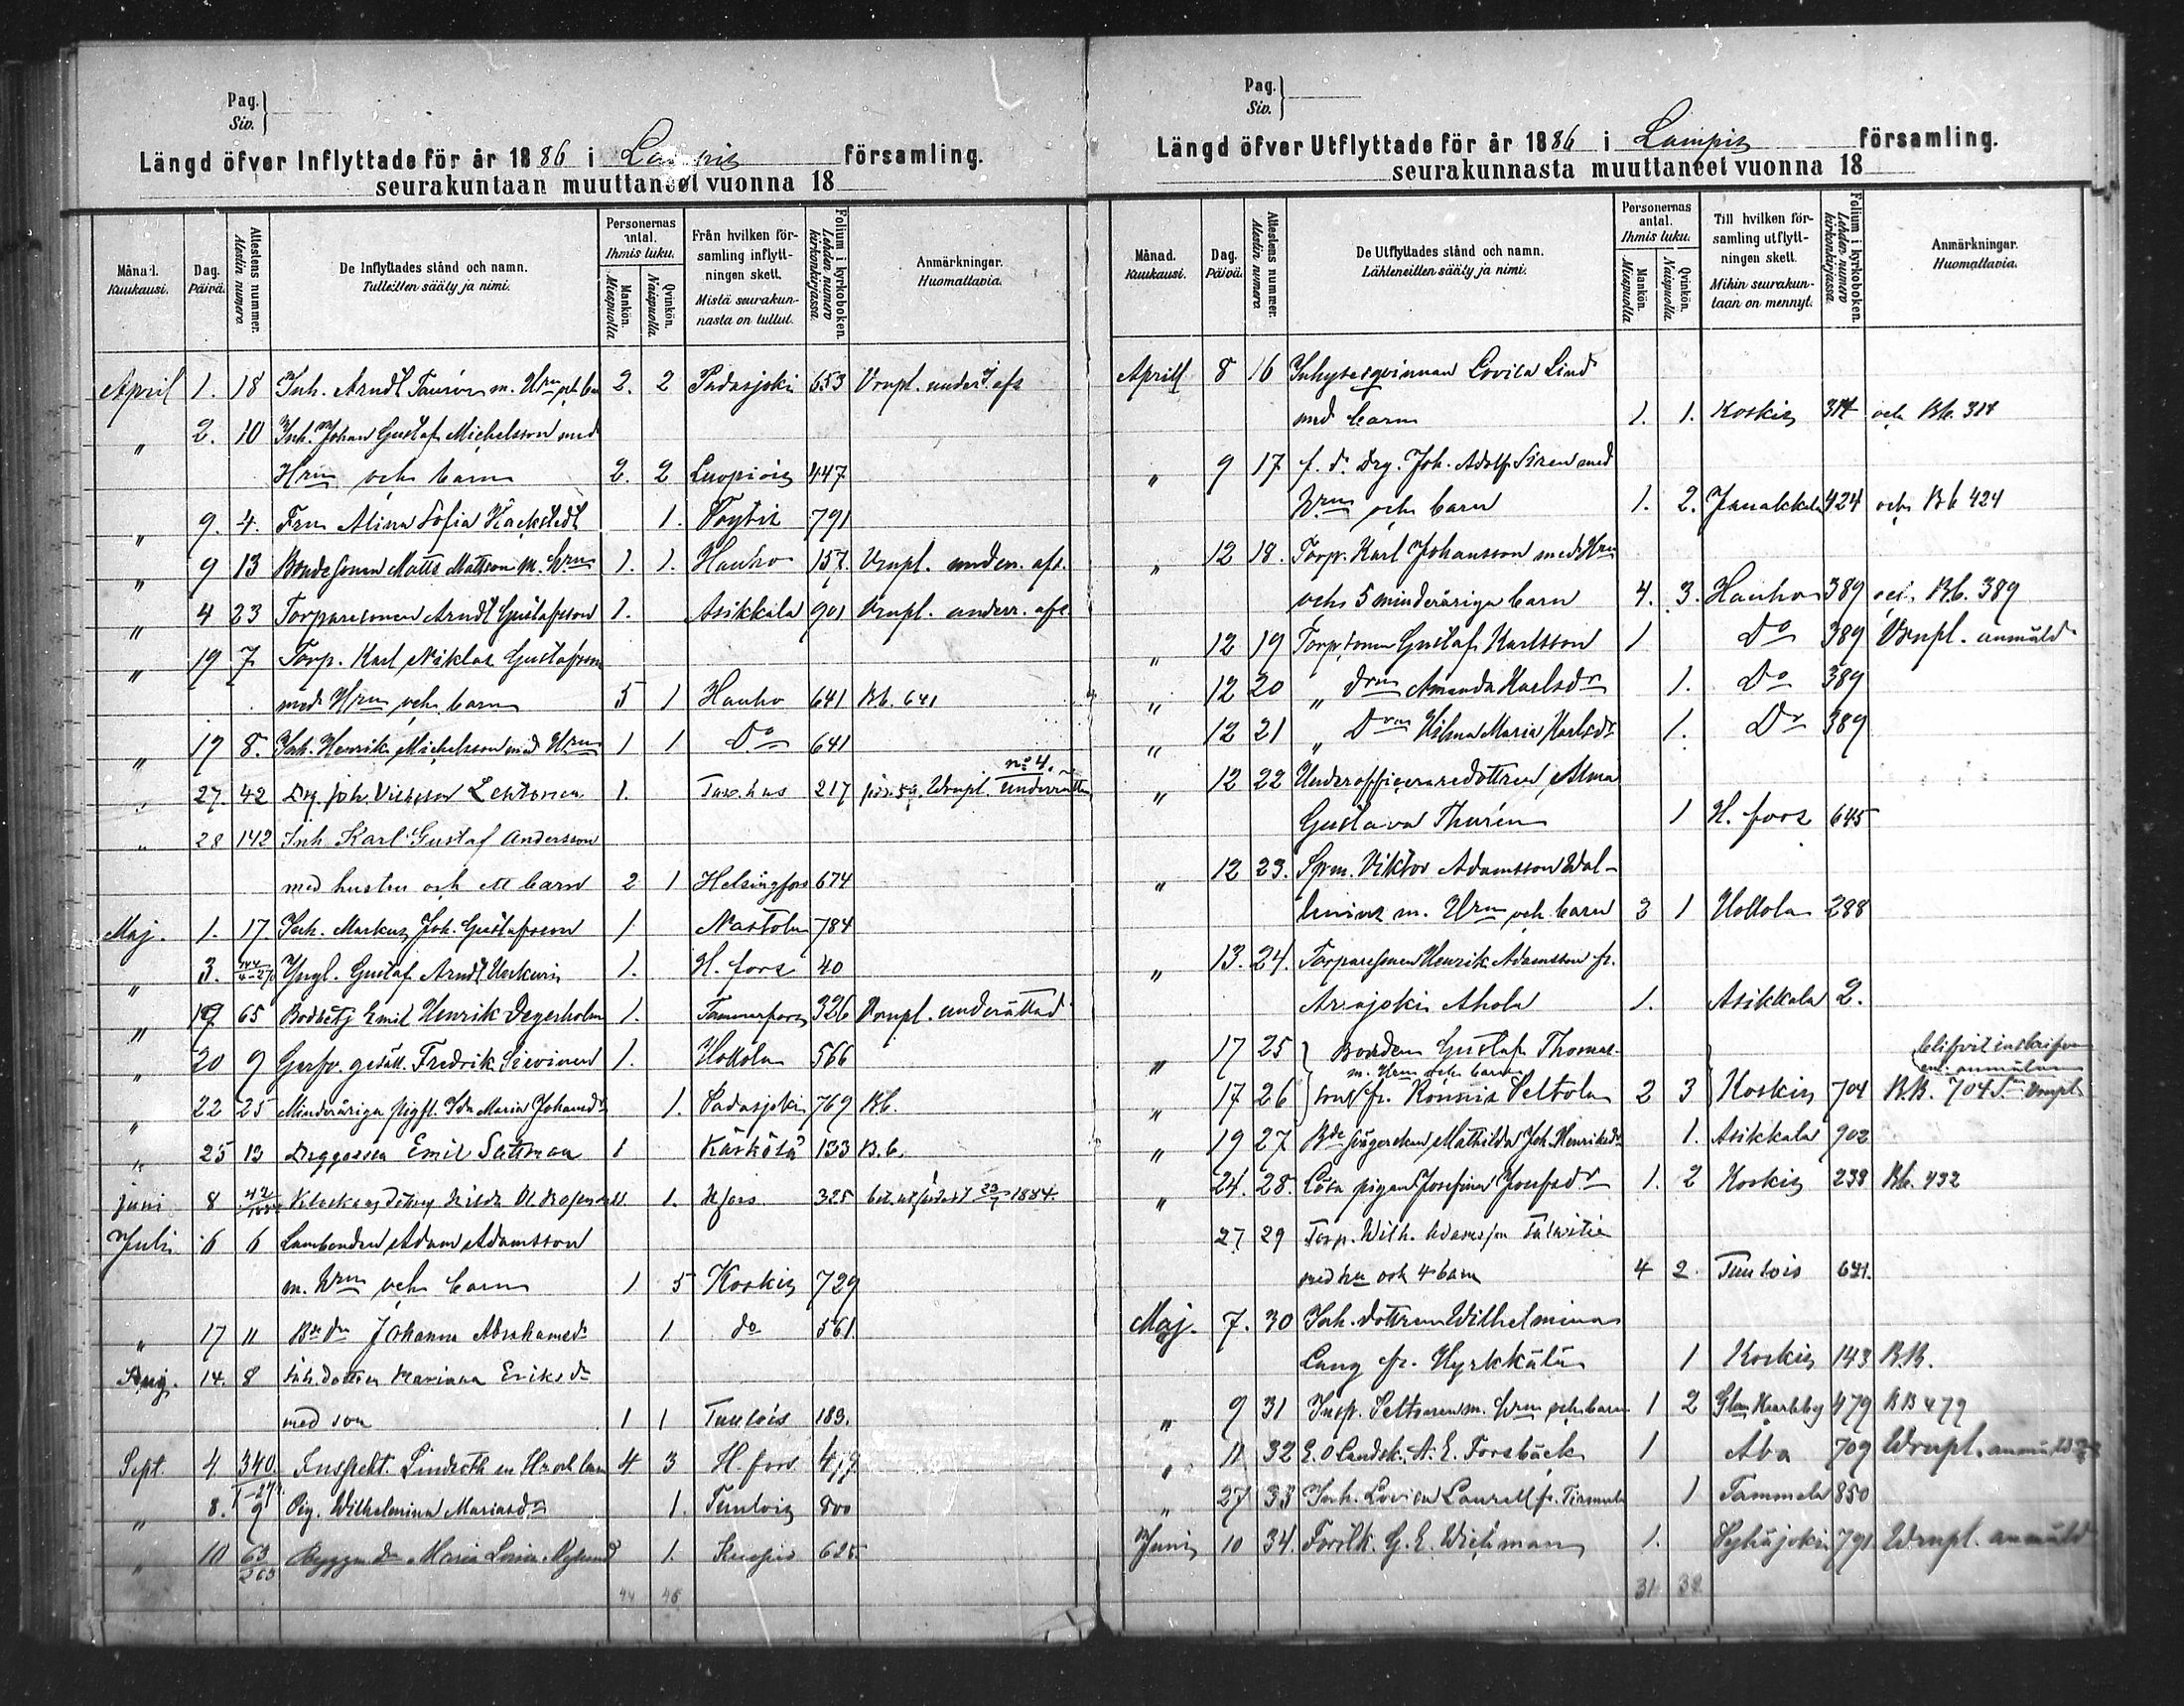 Pag.
Siv.
Längd öfver Inflyttade för år 1886 i Lampis församling.
seurakuntaan muuttaneet vuonna 18
Månad. Kuukausi.
Dag. Päivä.
Attestens nummer. Alestin numero.
De Inflyttades stånd och namn. Tulleitten sääty ja nimi.
Personernas antal. Ihmis luku.
Mankön. Miespuolia
Qvinkön. Naispuolia
Från hvilken församling inflyttningen skett. Mistä seurakunnasta on tullut.
Folium i kyrkoboken. Lehden numero kirkonkirjassa.
Anmärkningar. Huomattavia.
April 1. 18 Inh. Arndt m. Hru och barn 2. 2 Padasjoki 653 Vrnpl. afs
" 2. 10 Inh. Johan Gustaf Michelsson med
Hru och barn 2. 2 Luopiois 447
" 9. 4. Fru Alina Sofia 1. Pöytis 791
" 9 13 Bondesonen Matts Mattsson m. Hru 1. 1. Hauho 157. Vrnpl. afs.
" 4 23 Torparesonen Arndt Gustafsson 1. Asikkala 901 Vrnpl. afs.
" 19 7 Torp. Karl Niklas Gustafsson
med Hru och barn 5 1 Hauho 641 Bb. 641
" 19 8. Inh. Henrik Michelsson med Hru 1 1 Do 641
" 27. 42 Drg. Joh. Lehtonen 1. Tavs.hus 217 Vrnpl. no 4.
" 28 142 Inh Karl Gustaf Andersson
med hustru och ett barn 2 1 Helsingfors 674
Maj. 1. 17. Inh. Markus Joh. Gustafsson 1. Nastola 784
" 3. Yngl. Gustaf Arndt 1. H. fors 40
" 19 65 Bodbetj Emil Henrik Degerholm 1. Tammerfors 326 Vrnpl. underättad
" 20 9 Garfv. gesäll. Fredrik 1. Hollola 566
" 22 25 Minderåriga Ida Maria Johansdr 1. Padasjoki 769 Bb.
" 25 13 Emil 1 Kärkölä 133 B.b.
Juni 8 42 1. Hfors 325 1884.
Juli 6 6 Adam Adamsson
m. Hru och barn 1 5 Koskis 729
" 17 11 Johanna Abrahamsdr 1 do 561.
Aug. 14. 8 Inh. dottren Mariana Eriksdr
med son 1 1 Tuulois 183.
Sept. 4 340. Inspekt. Lindroth m Hru och barn 4 3 H. fors
" 8. 9 Pig. Wilhelmina Mariasdr 1. Tuulois 800
" 10 63 Maria Lovisa Nylund 1. 625.
44 45
Pag.
Siv.
Längd öfver Utflyttade för år 1886 i Lampis församling.
seurakunnasta muuttaneet vuonna 18
Månad. Kuukausi.
Dag. Päivä.
Attestens nummer. Alestin numero
De Utflyttades stånd och namn. Lähteneitten sääty ja nimi.
Personernas antal. Ihmis luku.
Mankön. Miespuolia
Qvinkön. Naispuolia.
Till hvilken församling utflyttningen skett. Mihin seurakuntaan on mennyt.
Folium i kyrkoboken. Lehden numero kirkonkirjassa.
Anmärkningar. Huomattavia.
April 8 16 Inhysesqvinnan Lovisa Lind
med barn 1. 1. Koskis 314 och Bb. 314
" 9 17 f. d. Drg. Joh. Adolf Siren med
Hru och barn 1. 2. Janakkala 424 och Bb 424
" 12 18. Torp. Karl Johansson med Hru
och 5 minderåriga barn 4. 3. Hauho 389 och Bb. 389
" 12 19 Torp.sonen Gustaf Karlsson 1 Do 389 Vrnpl. anmäld
" 12 20 " dren Amanda Karlsdr 1. Do 389
" 12 21 " Dren Hilma Maria Karlsdr 1. Do 389
" 12 22 Underofficeraredottren Alma
Gustava Thurén 1 H. fors 645
" 12 23. Spm. Viktor Adamsson Wal-
m. Hru och barn 3 1 Hollola 288
" 13. 24. Torparesonen Henrik Adamsson fr.
Ahola 1. Asikkala 2.
" 17 25 Bonden Gustaf Thomas-
m. Hru och barn
" 17 26 son fr. Rönnis Peltola 2 3 Koskis 704 B.B. 704
" 19 27 Mathilda Joh. Henriksdr 1. Asikkala 902
" 24. 28. Lösa pigan Josefina Josefsdr 1. 2 Koskis 238 Bb.
27 29 Torp. Wilh. Adamsson
med hu och 4 barn 4 2 Tuulois 641.
Maj. 7. 30 Inh. dottren Wilhelmina
Lang fr. Hyrkkälä 1 Koskis 143 B.B.
" 9 31 Insp. Peltonen m. Hru och barn 1 2 Gla Karleby 479 BB 479
" 11 32 E.O. Landsk. A. E. Forsbäck 1 Åbo 709 Vrnpl. anmäld
" 27 33 Inh. Lovisa Laurell fr. 1 Tammela 850
Juni 10 34. Forstk. G. E. Wichman 1. Pyhäjoki 791 Vrnpl. anmäld
31. 32